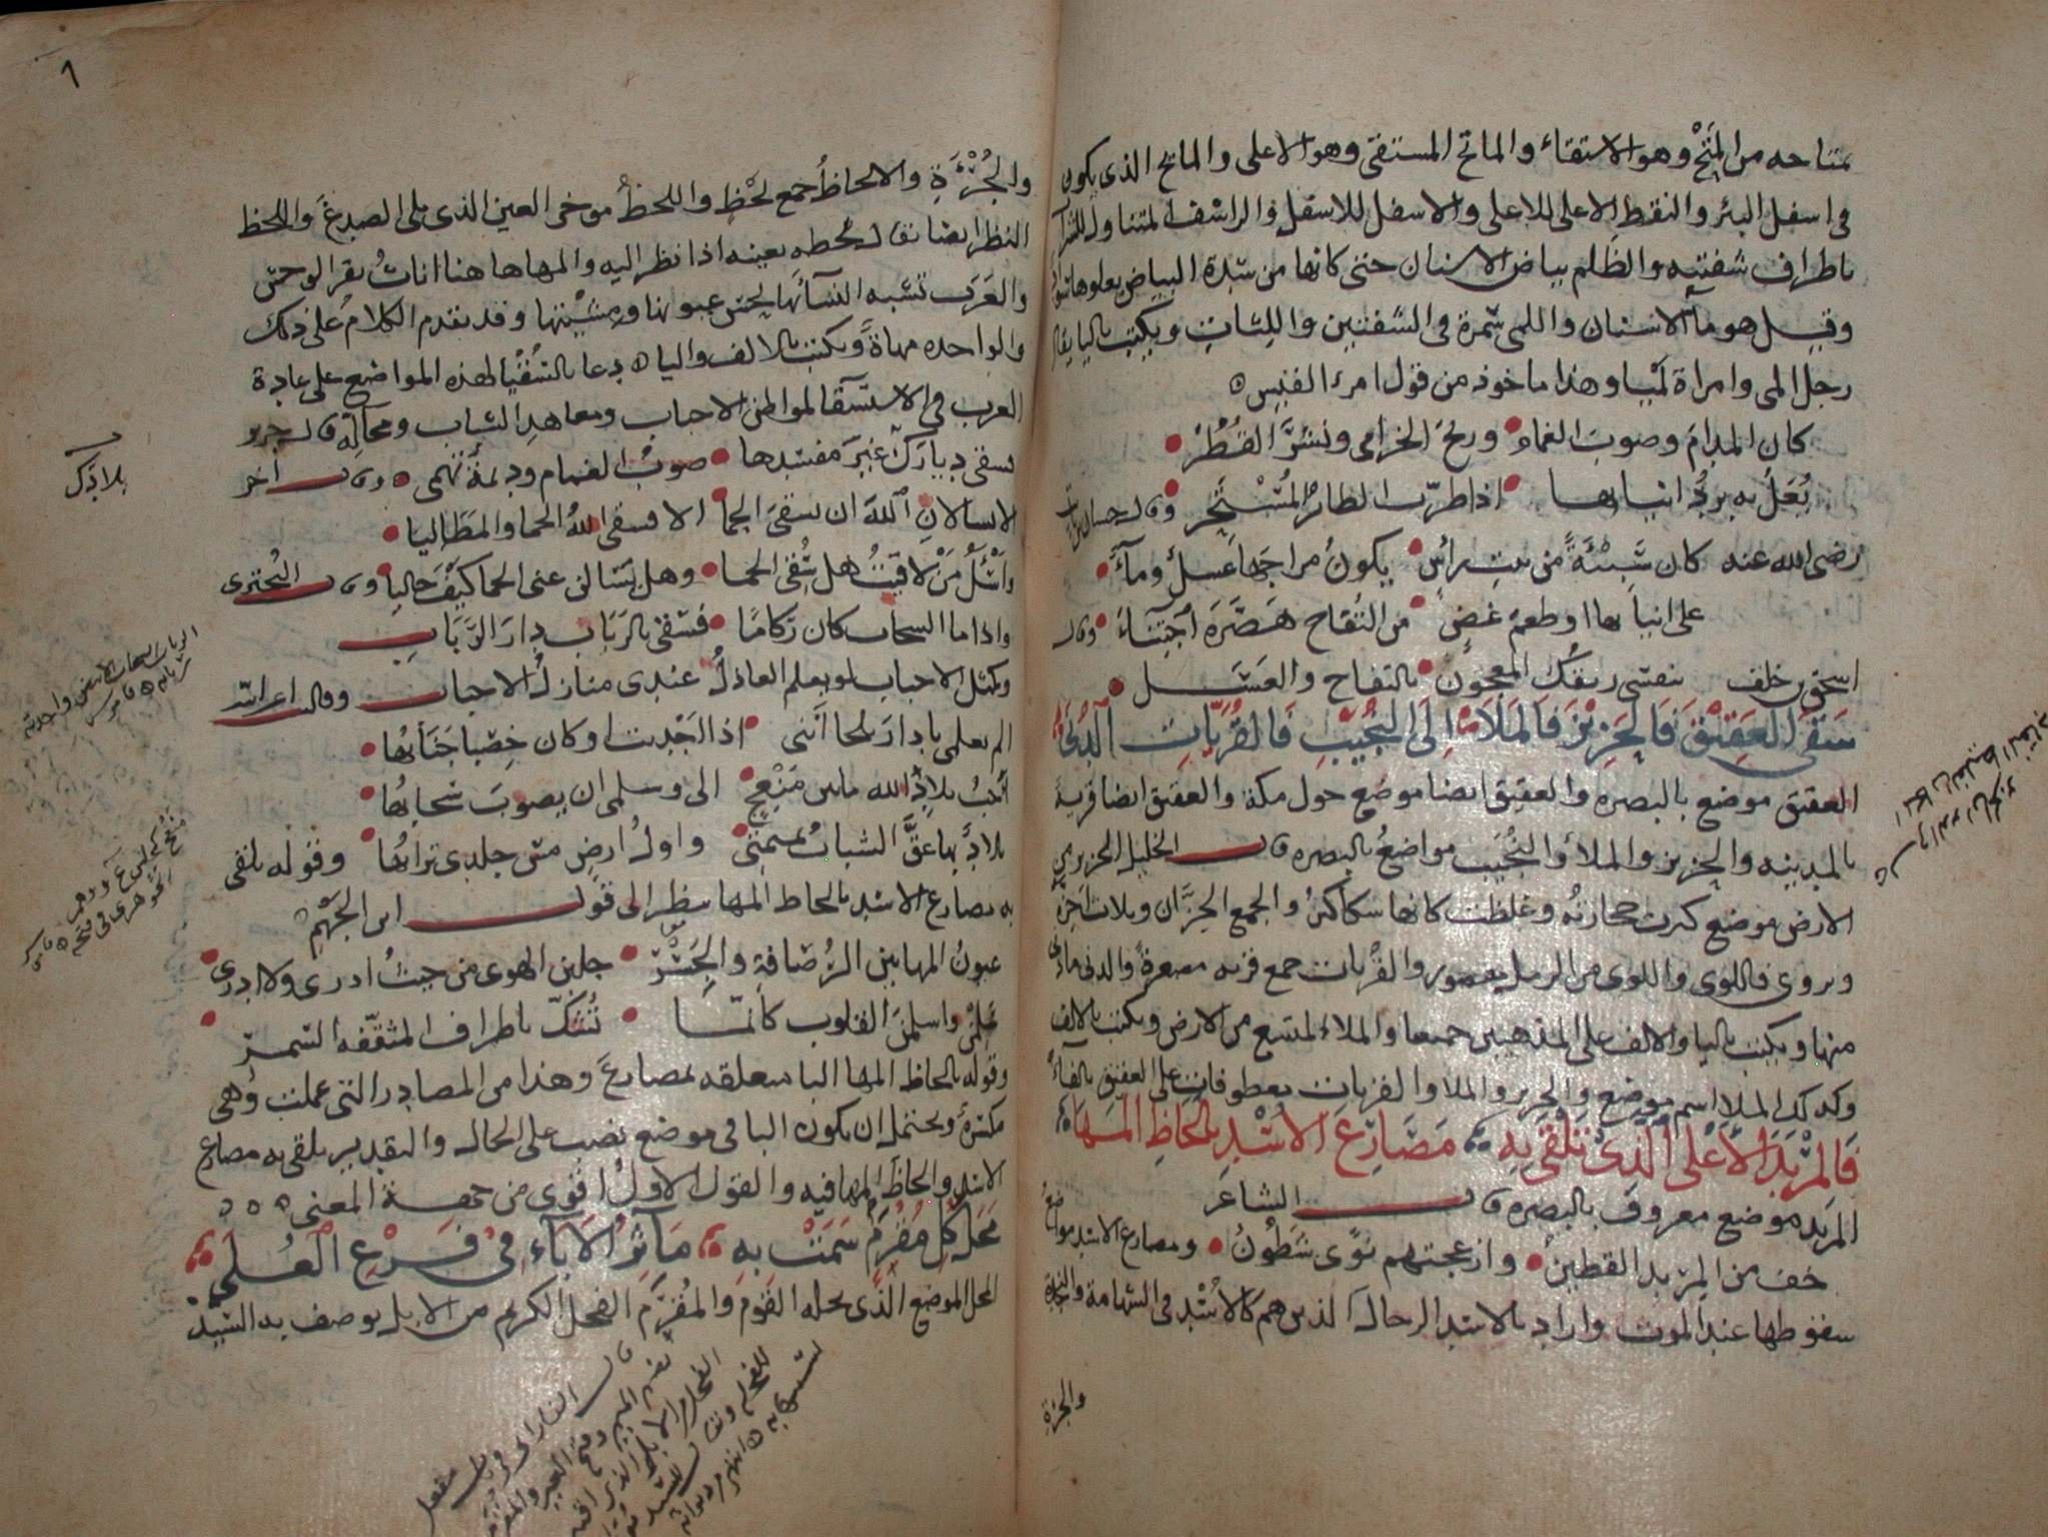 متاحه من المَتْح وهو الاستقاء والماتح المستقى وهو الاعلى والمايح الذى يكون
فى اسفل البئر والنقط الاعلى للاعلى والاسفل للاسفل والراشف المتناول للشراب
باطراف شفتيه والظلم بياض الاسنان حتى كانها من شدة البياض يعلوها
وقيل هو ماء الاسنان واللمى سمرة فى الشفتين واللثات ويكتب باليا يقال
رجل المى وامراة لميا وهذا ماخوذ من قول امرء القيس
كان المدامَ وصوبَ الغمام وريحَ الخزامى ونشرَ القُطُرْ
يُعَلُّ به بردُ انيابها اذا طرّب الطائرُ المُسْتَحِر وقال حسان بن ثابت
رضى الله عنه كان سَبِيْئَةً من بيت رأسٍ يكونُ مزاجَها عسلٌ وماءُ
على انيابها او طعم غضٍ من التفاح هَصَّرَهُ اجتِنَاءُ وقال
اسحق بن خلف بتفاح والعسل
سَقَى العَقِيْقَ فَالحَزِيْزَ فَالمَلَا إِلَى النُّجَيْبِ فَالقُرَيَّاتِ الدُّنَى
العقيق موضع بالبصره والعقيق ايضا موضع حول مكة والعقيق ايضا قرية
بالمدينه والحزيز والملا والنجيب مواضعُ بالبصره قال الخليل الحزيز من
الارض موضع كثرت حجارته وغلظت كانها سكاكينُ والجمع الحزّان وثلاث احزة
ويروى فاللوى واللوى من الرمل مقصور والقريات جمع قريه مصغرةً والدنى مادنى
منها ويكتب باليا والالف على المذهبين جميعا والملاء المتسع من الارض ويكتب بالالف
وكذلك الملا اسم موضع والحزيز والملا والقريات معطوفات على العقيق بالفاء
فَالمِرْبَدَ الأَعْلَى الَّذِى تَلْقَى بِهِ مَصَارِعَ الأُسْدِ بِأَلحَاظِ المَهَا
المربد موضع معروف بالبصره قال الشاعر
خف من المربد القطين وازعجتهم نوًى شَطُونُ ومصارع الاسد مواضعُ
سقوطها عند الموت واراد بالاسد الرجال الذين هم كالاُسْد فى الشهامة والنجدة
والجرءة
والجُرْءَةِ والالحاظُ جمع لحْظٍ واللحظُ موخر العين الذى يلى الصدغَ واللحظ
النظر ايضا يقال لحظه بعينه اذا نظر اليه والمها هاهنا اناثُ بقر الوحش
والعَرَب تشبه النسآء بها لحسن عيونها ومشيتها وقد تقدم الكلامُ على ذلك
والواحده مهاةً ويكتب بالالف واليا دعا بالسُّقْيَا لهذه المواضع على عادة
العرب فى الاستسقا لمواطن الاحباب ومعاهد الشباب ومحالّهِ قال جرير
فسقى دياركَ غيرَ مفسدها صوبُ الغمام وديمةٌ تهمى وقال آخر
الا سالان اللهَ ان يسقىَ الحما الا فسقى اللهُ الحما والمَطَاليا
واسْئلُ مَنْ لاقيتُ هل سُقى الحما وهل يسَالن عنى الحما كيفَ حاليا وقال البُحترى
واذا ما السحابُ كان رُكامًا فسقى بالرَبَابِ دارَ الرَّبَابِ
ومثل الاحباب لو يعلم العاذلُ عندى منازلُ الاحبابِ وقالت اعرابيّه
الم تعلمى يا دارَ بلحا أننى اذا اجْدبت او كان خِصْبا جَنَابُها
أحَبُّ بلادِ الله ما بين مَنْعِجٍ الىّ وسلمى ان يصوبَ سَحابُها
بلادٌ بها عقّ الشبابُ تميمتى واولُ ارضٍ مسّ جلدى ترابُها وقوله يلقى
به مصارع الاسد بالحاظ المها ينظر الى قول ابن الجَهْم
عيونُ المها بين الرُّصَافةِ والجَسْرِ جلبن الهوى من حيثُ ادرى ولا ادرى
واسلمنَ القلوبَ كانّمَا تُشَكّ باطراف المثقّفه السُّمرِ
وقوله بالحاظ المها البا متعلقه بمصارعَ وهذا من المصادر التى عملت وهى
مكسّرةٌ ويحتمل ان يكون البا فى موضع نصب على الحال والتقدير يلقى به مصارع
الاسد والحاظُ المها فيه والقول الاول اقوى من جهة المعنى
مَحَلُّ كُلِّ مُقْرَمٍ سَمَتْ بِهِ مَآثِرُ الآبَآءِ فِى فَرْعِ الْعُلَى
المحل الموضع الذى يحله القومُ والمُقرَم الفحل الكريم من الابل يوصف به السّيدُ
بلادك
الرباب السحاب الابيض واحدته
ربابه قاموس